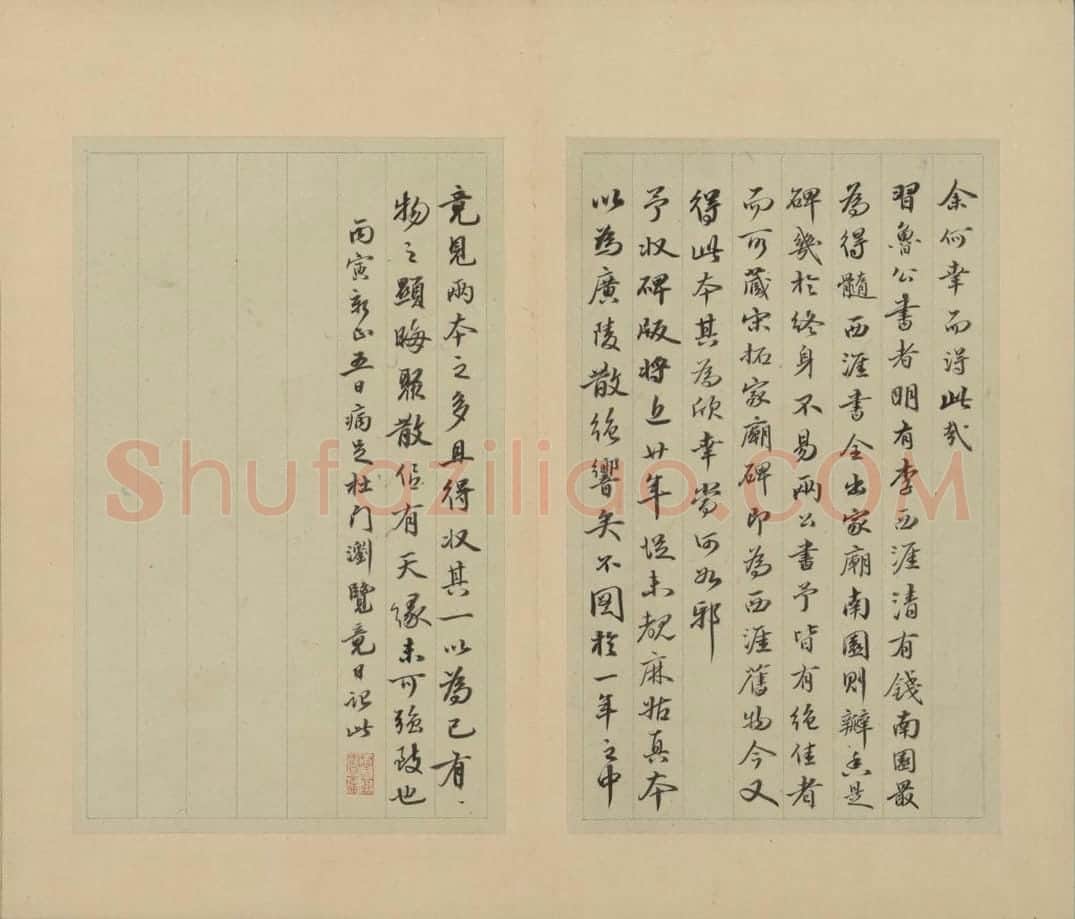 余何幸而得此哉
習魯公書者明有李西涯清有錢南園最
為得髓西涯書全出家廟南園則瓣香是
碑幾於終身不易兩公書予皆有絕佳者
而可藏宋拓家廟碑即為西涯舊物今又
得此本其為欣幸當何如邪
予收碑版將近廿年從未覩麻姑真本
以為廣陵散絕響矣不圖於一年之中
竟見兩本之多且得收其一以為己有
物之顯晦聚散信有天緣未可強致也
丙寅新正五日病足杜門瀏覽竟日記此
Shufaziliao.COM